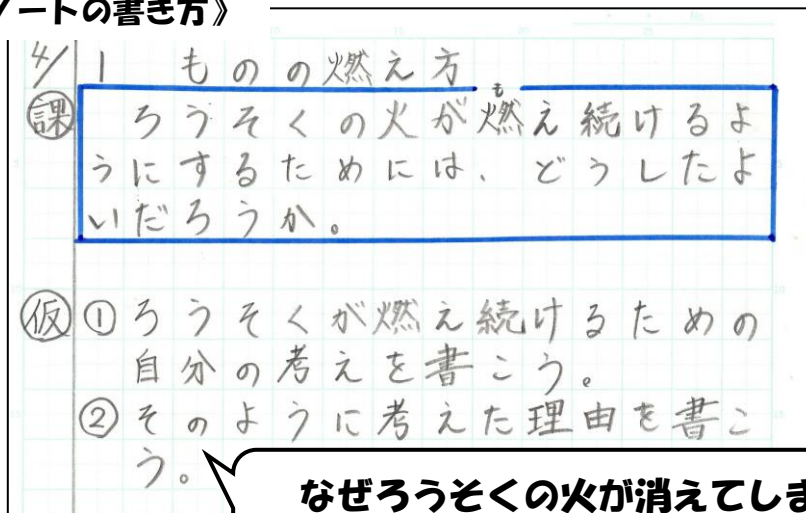 ノートの書き方》
4/ 1 ものの燃え方
も
課 ろうそくの火が燃え続けるよ
うにするためには、どうしたよ
いだろうか。
仮 ①ろうそくが燃え続けるための
自分の考えを書こう。
②そのように考えた理由を書こ
う。
なぜろうそくの火が消えてしま